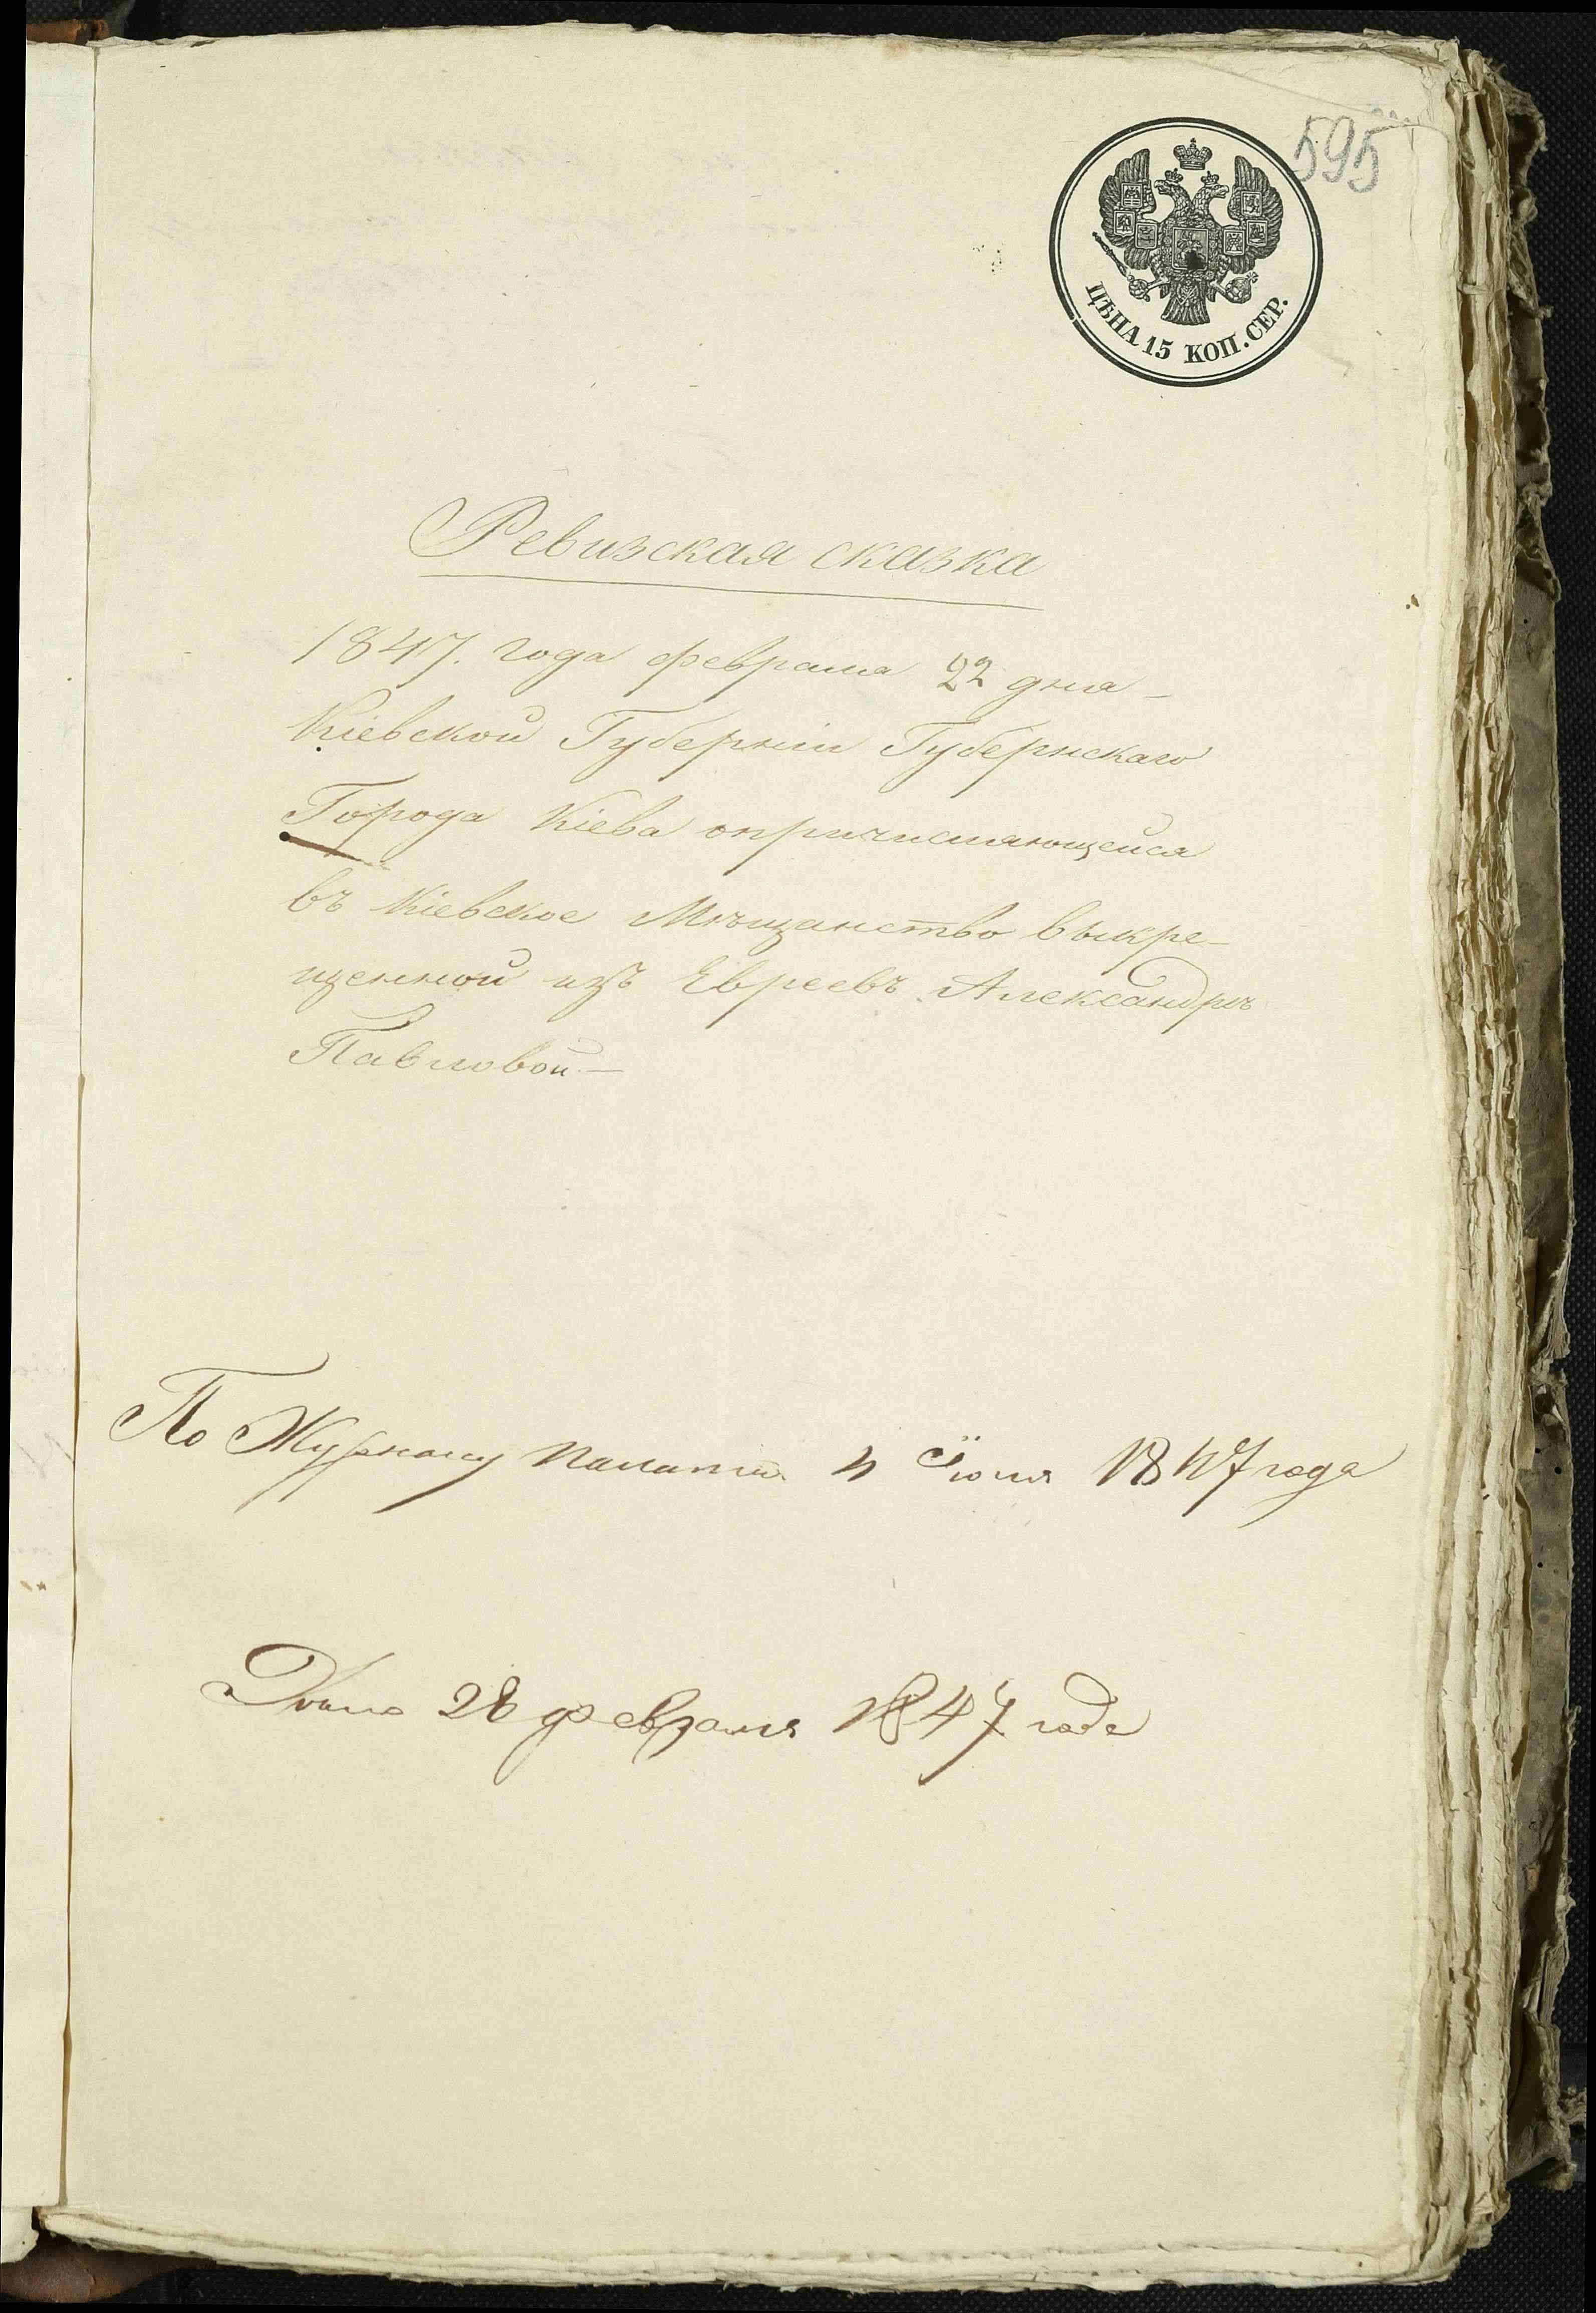 595
ЦѢНА 15 КОП. СЕР.
Ревизская сказка
1847. года февраля 22 дня –
Кіевской Губерніи Губернскаго
Города Кіева опричисляющейся
въ Кіевское Мѣщанство выкре–
щенной изъ Евреевъ Александрѣ
Павловой –
По Журналу Палаты 4 Іюня 1847 года
28 февраля 1847 года